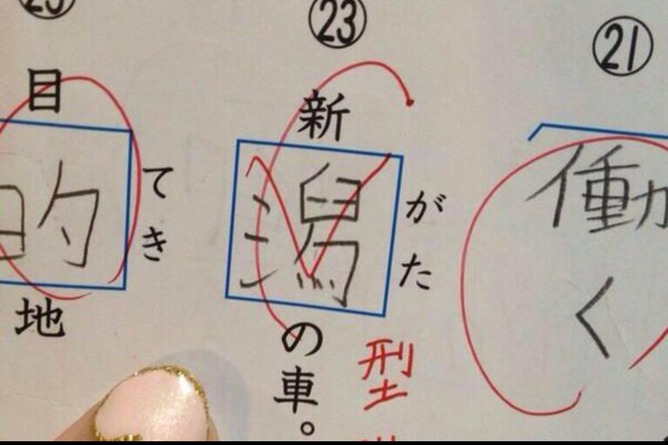 ㉑
働く
㉓
新潟の車。
がた
型
目的地
てき